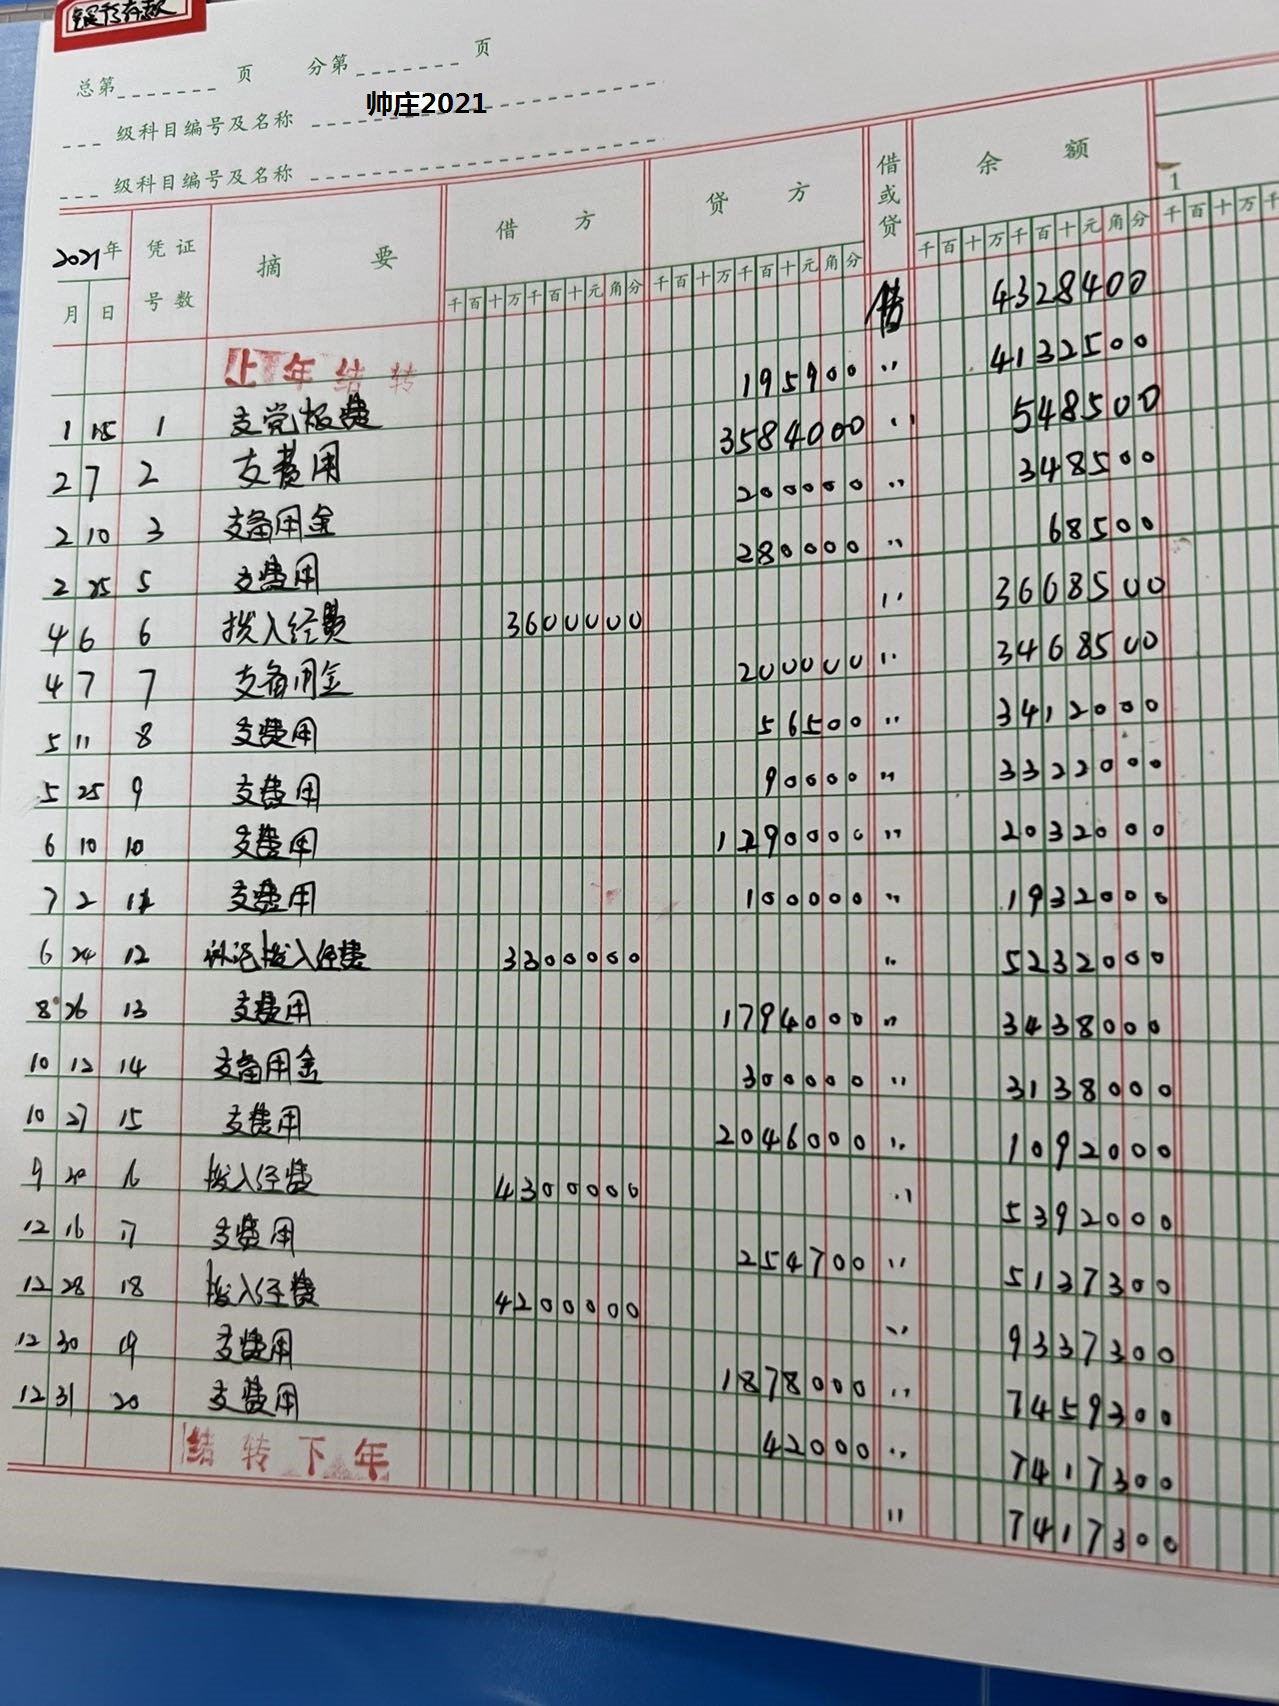 银行存款
总第 页 分第 页
帅庄2021
级科目编号及名称
级科目编号及名称
2021年 凭证 摘要 借方 贷方 借或贷 余额
月 日 号数 千百十万千百十元角分 千百十万千百十元角分 千百十万千百十元角分 千百十万千
1
上年结转 借 4328400
1 15 1 支党报费 195900 〃 4132500
2 7 2 支费用 3584000 〃 548500
2 10 3 支备用金 200000 〃 348500
2 25 5 支费用 280000 〃 68500
4 6 6 拨入经费 3600000 〃 3668500
4 7 7 支备用金 200000 〃 3468500
5 11 8 支费用 56500 〃 3412000
5 25 9 支费用 90000 〃 3322000
6 10 10 支费用 1290000 〃 2032000
7 2 11 支费用 100000 〃 1932000
6 24 12 拨入经费 3300000 〃 5232000
8 26 13 支费用 1794000 〃 3438000
10 12 14 支备用金 300000 〃 3138000
10 27 15 支费用 2046000 〃 1092000
9 20 16 拨入经费 4300000 〃 5392000
12 16 17 支费用 254700 〃 5137300
12 28 18 拨入经费 4200000 〃 9337300
12 30 19 支费用 1878000 〃 7459300
12 31 20 支费用 42000 〃 7417300
结转下年 〃 7417300